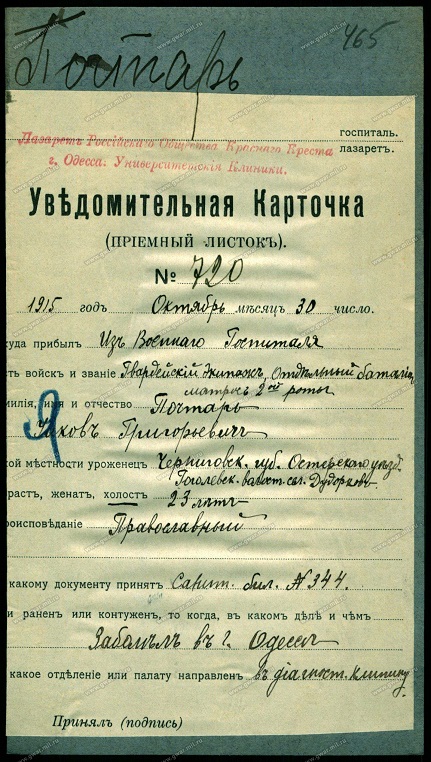 465
Почтарь
госпиталь.
Лазаретъ Россійскаго Общества Краснаго Креста
лазаретъ.
г. Одесса. Университетскія Клиники.
Увѣдомительная Карточка
(ПРІЕМНЫЙ ЛИСТОКЪ).
№ 720
1915 годъ Октябрь мѣсяцъ 30 число.
уда прибылъ Изъ Военнаго Госпиталя
ть войскъ и званіе Гвардейскій Экипажъ, Отдѣльный баталіон
матросъ 2ой роты
милія, имя и отчество Почтарь
Яковъ Григорьевичъ
кой мѣстности уроженецъ Черниговск. губ. Остерскаго уѣзд.
Гоголевск. волост. сел. Дударков
растъ, женатъ, холостъ 23 лѣтъ
роисповѣданіе Православный
какому документу принятъ Санит. бил. № 344.
и раненъ или контуженъ, то когда, въ какомъ дѣлѣ и чѣмъ
Заболѣлъ въ г. Одессы
какое отдѣленіе или палату направленъ въ діагност. клинику
Принялъ (подпись)